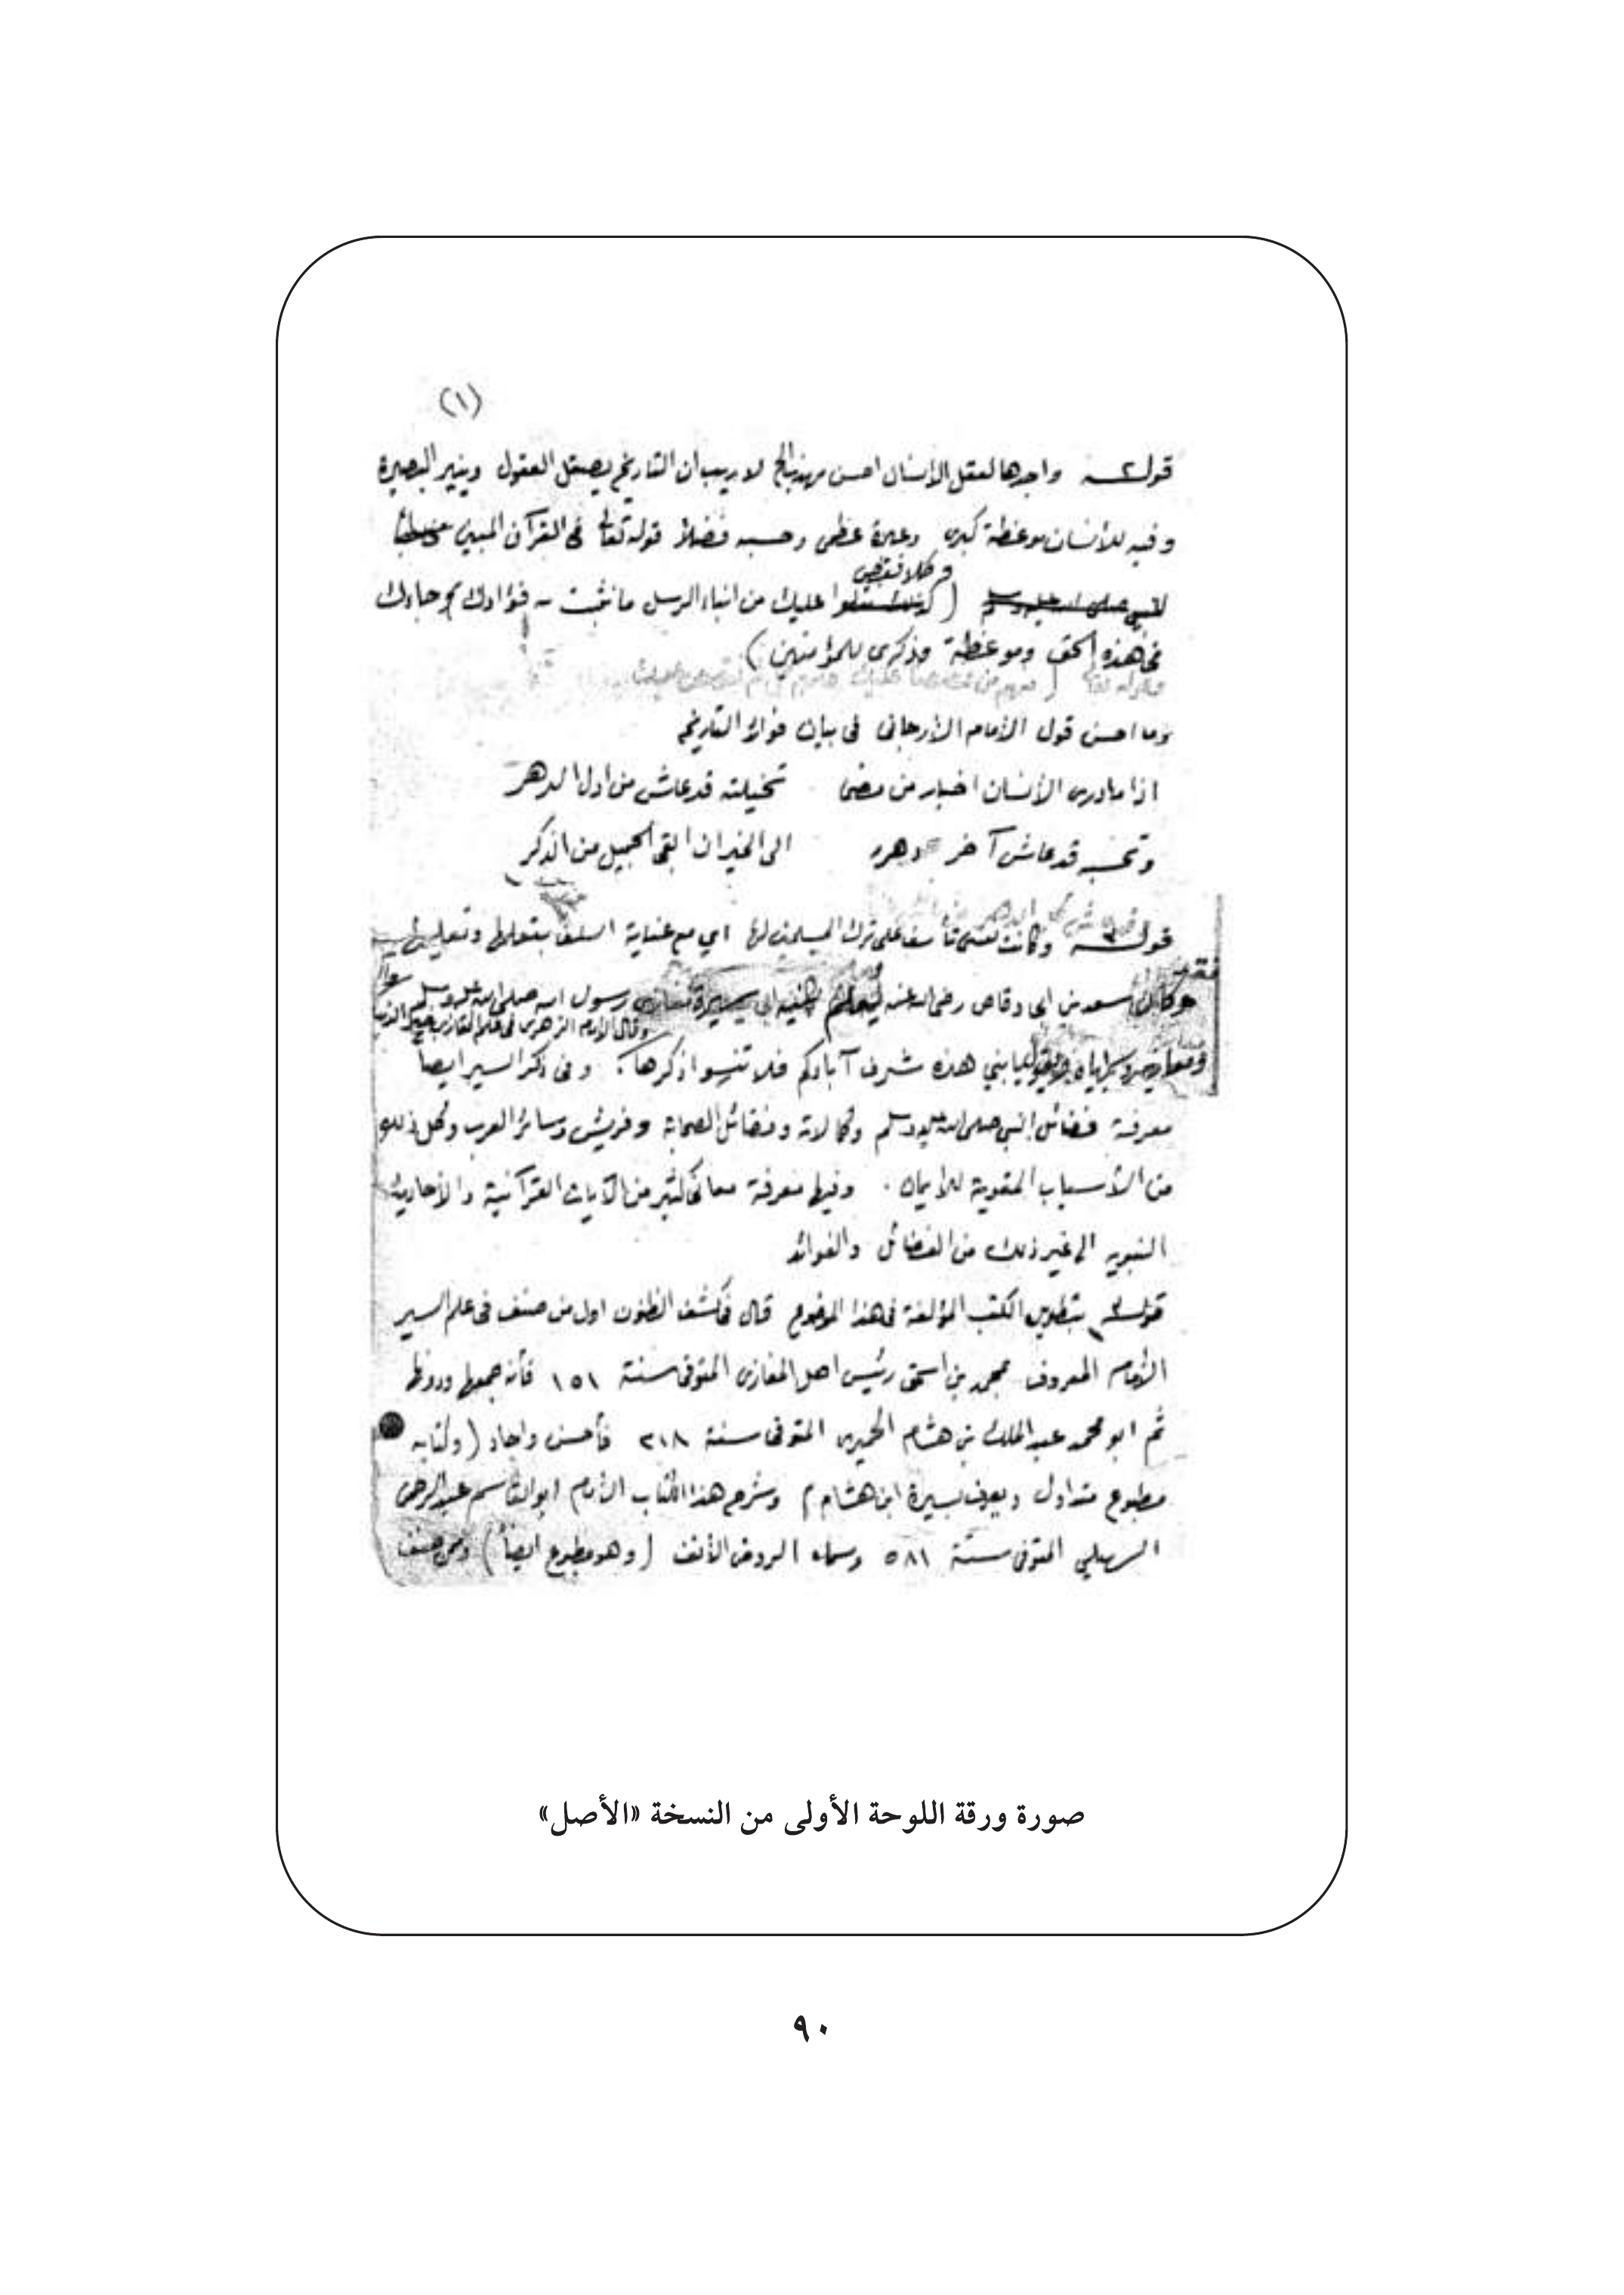 (١)
قوله واجدها لعقل الإنسان احسن مهذب الخ لا ريب ان التاريخ يصقل العقول وينير البصيرة
وفيه للأنسان موعظة كبرى وعبرة عظمى وحسبه فضلاً قوله تعالى في القرآن المبين
وكلا نقص
( عليك من انباء الرسل ما نثبت به فؤادك وجاءك
في هذه الحق وموعظة وذكرى للمؤمنين )
وما احسن قول الأمام الأرجاني في بيان فوائد التاريخ
اذا ما درى الأنسان اخبار من مضى تخيلته قد عاش من اول الدهر
وتحسبه قد عاش آخر دهره الى الحشر ان ابقى الجميل من الذكر
قوله وكانت نفسى تأسف على ترك المسلمين لها اي مع عناية السلف بتعلمها وتعليمها
فقد
كان سعد بن ابي وقاص رضي الله عنه يعلم بنيه رسول الله صلى الله عليه وسلم
وقال الأمام الزهري في علم المغازي خير الدنيا
يا بني هذه شرف آبائكم فلا تنسوا ذكرها . وفى ذكر السير ايضاً
معرفة فضائل النبي صلى الله عليه وسلم وكمالاته وفضائل الصحابة وقريش وسائر العرب وكل ذلك
من الأسباب المقوية للايمان . وفيها معرفة معاني كثير من الآيات القرآنية والأحاديث
النبويه الى غير ذلك من الفضائل والفوائد
قوله بتطويل الكتب المؤلفة في هذا الموضوع قال في كشف الظنون اول من صنف في علم السير
الأمام المعروف محمد بن اسحق رئيس اهل المغازى المتوفى سنة ١٥١ فأنه جمعها ودونها
ثم ابو محمد عبد الملك بن هشام الحميري المتوفى سنة ٢١٨ فأحسن واجاد ( وكتابه
مطبوع متداول ويعرف بسيرة ابن هشام ) وشرح هذا الكتاب الأمام ابو القاسم عبد الرحمن
السهيلي المتوفى سنة ٥٨١ وسماه الروض الأنف ( وهو مطبوع ايضاً ) وممن صنف
صورة ورقة اللوحة الأولى من النسخة «الأصل»
٩٠